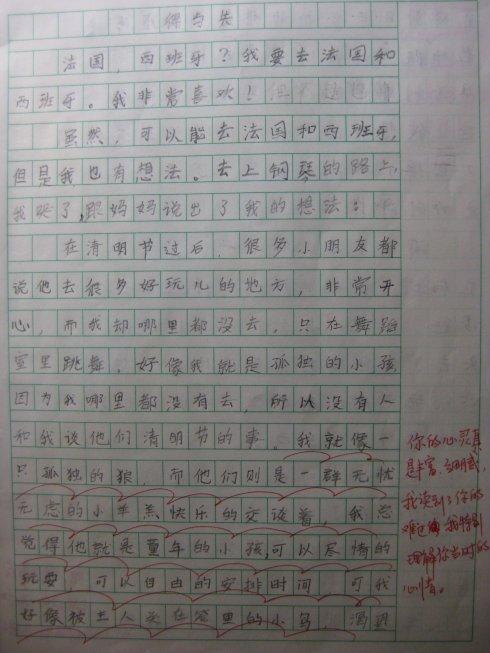 得与失
法国，西班牙？我要去法国和
西班牙。我非常喜欢！
虽然，可以能去法国和西班牙，
但是我也有想法。去上钢琴的路上，
我哭了，跟妈妈说出了我的想法：
在清明节过后，很多小朋友都
说他去很多好玩儿的地方，非常开
心，而我却哪里都没去，只在舞蹈
室里跳舞。好像我就是孤独的小孩，
因为我哪里都没有去，所以没有人
和我谈他们清明节的事。我就像一
只孤独的狼，而他们则是一群无忧
无虑的小羊羔快乐的交谈着，我总
觉得他就是童年的小孩，可以尽情的
玩耍，可以自由的安排时间，可我
好像被主人关在笼里的小鸟，渴望
你的心灵真
是丰富、细腻，
我读到了你的
难过，我特别
理解你当时的
心情。